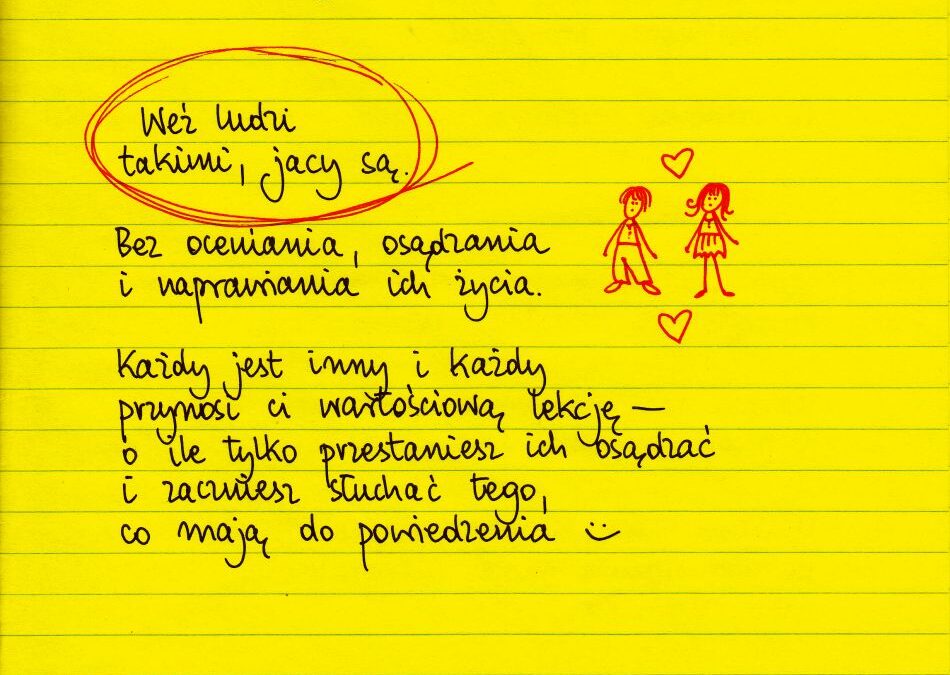 Weź ludzi
takimi, jacy są.
Bez oceniania, osądzania
i naprawiania ich życia.
Każdy jest inny i każdy
przynosi ci wartościową lekcję —
o ile tylko przestaniesz ich osądzać
i zaczniesz słuchać tego,
co mają do powiedzenia :)